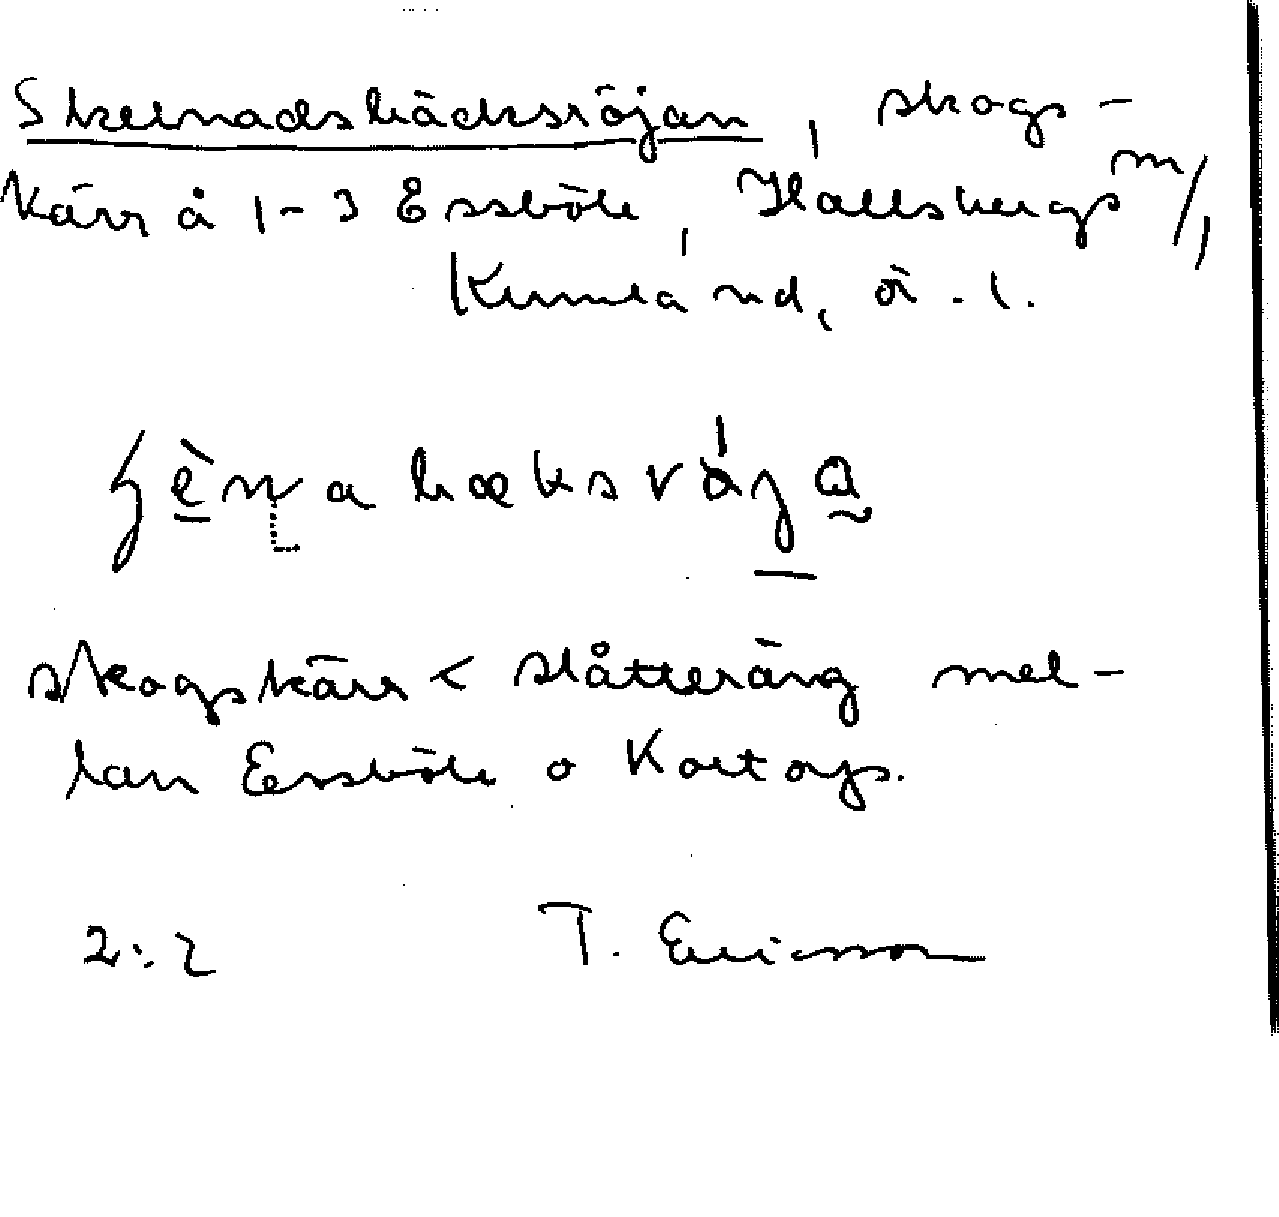 Skelnadsbäcksröjan, skogs-
kärr å 1-3 Essböle, Hallsbergs m/,
Kumla nd, ö.l.
skogskärr < slåtteräng mel-
lan Essböle o Kartorp.
2:2 T. Ericsson